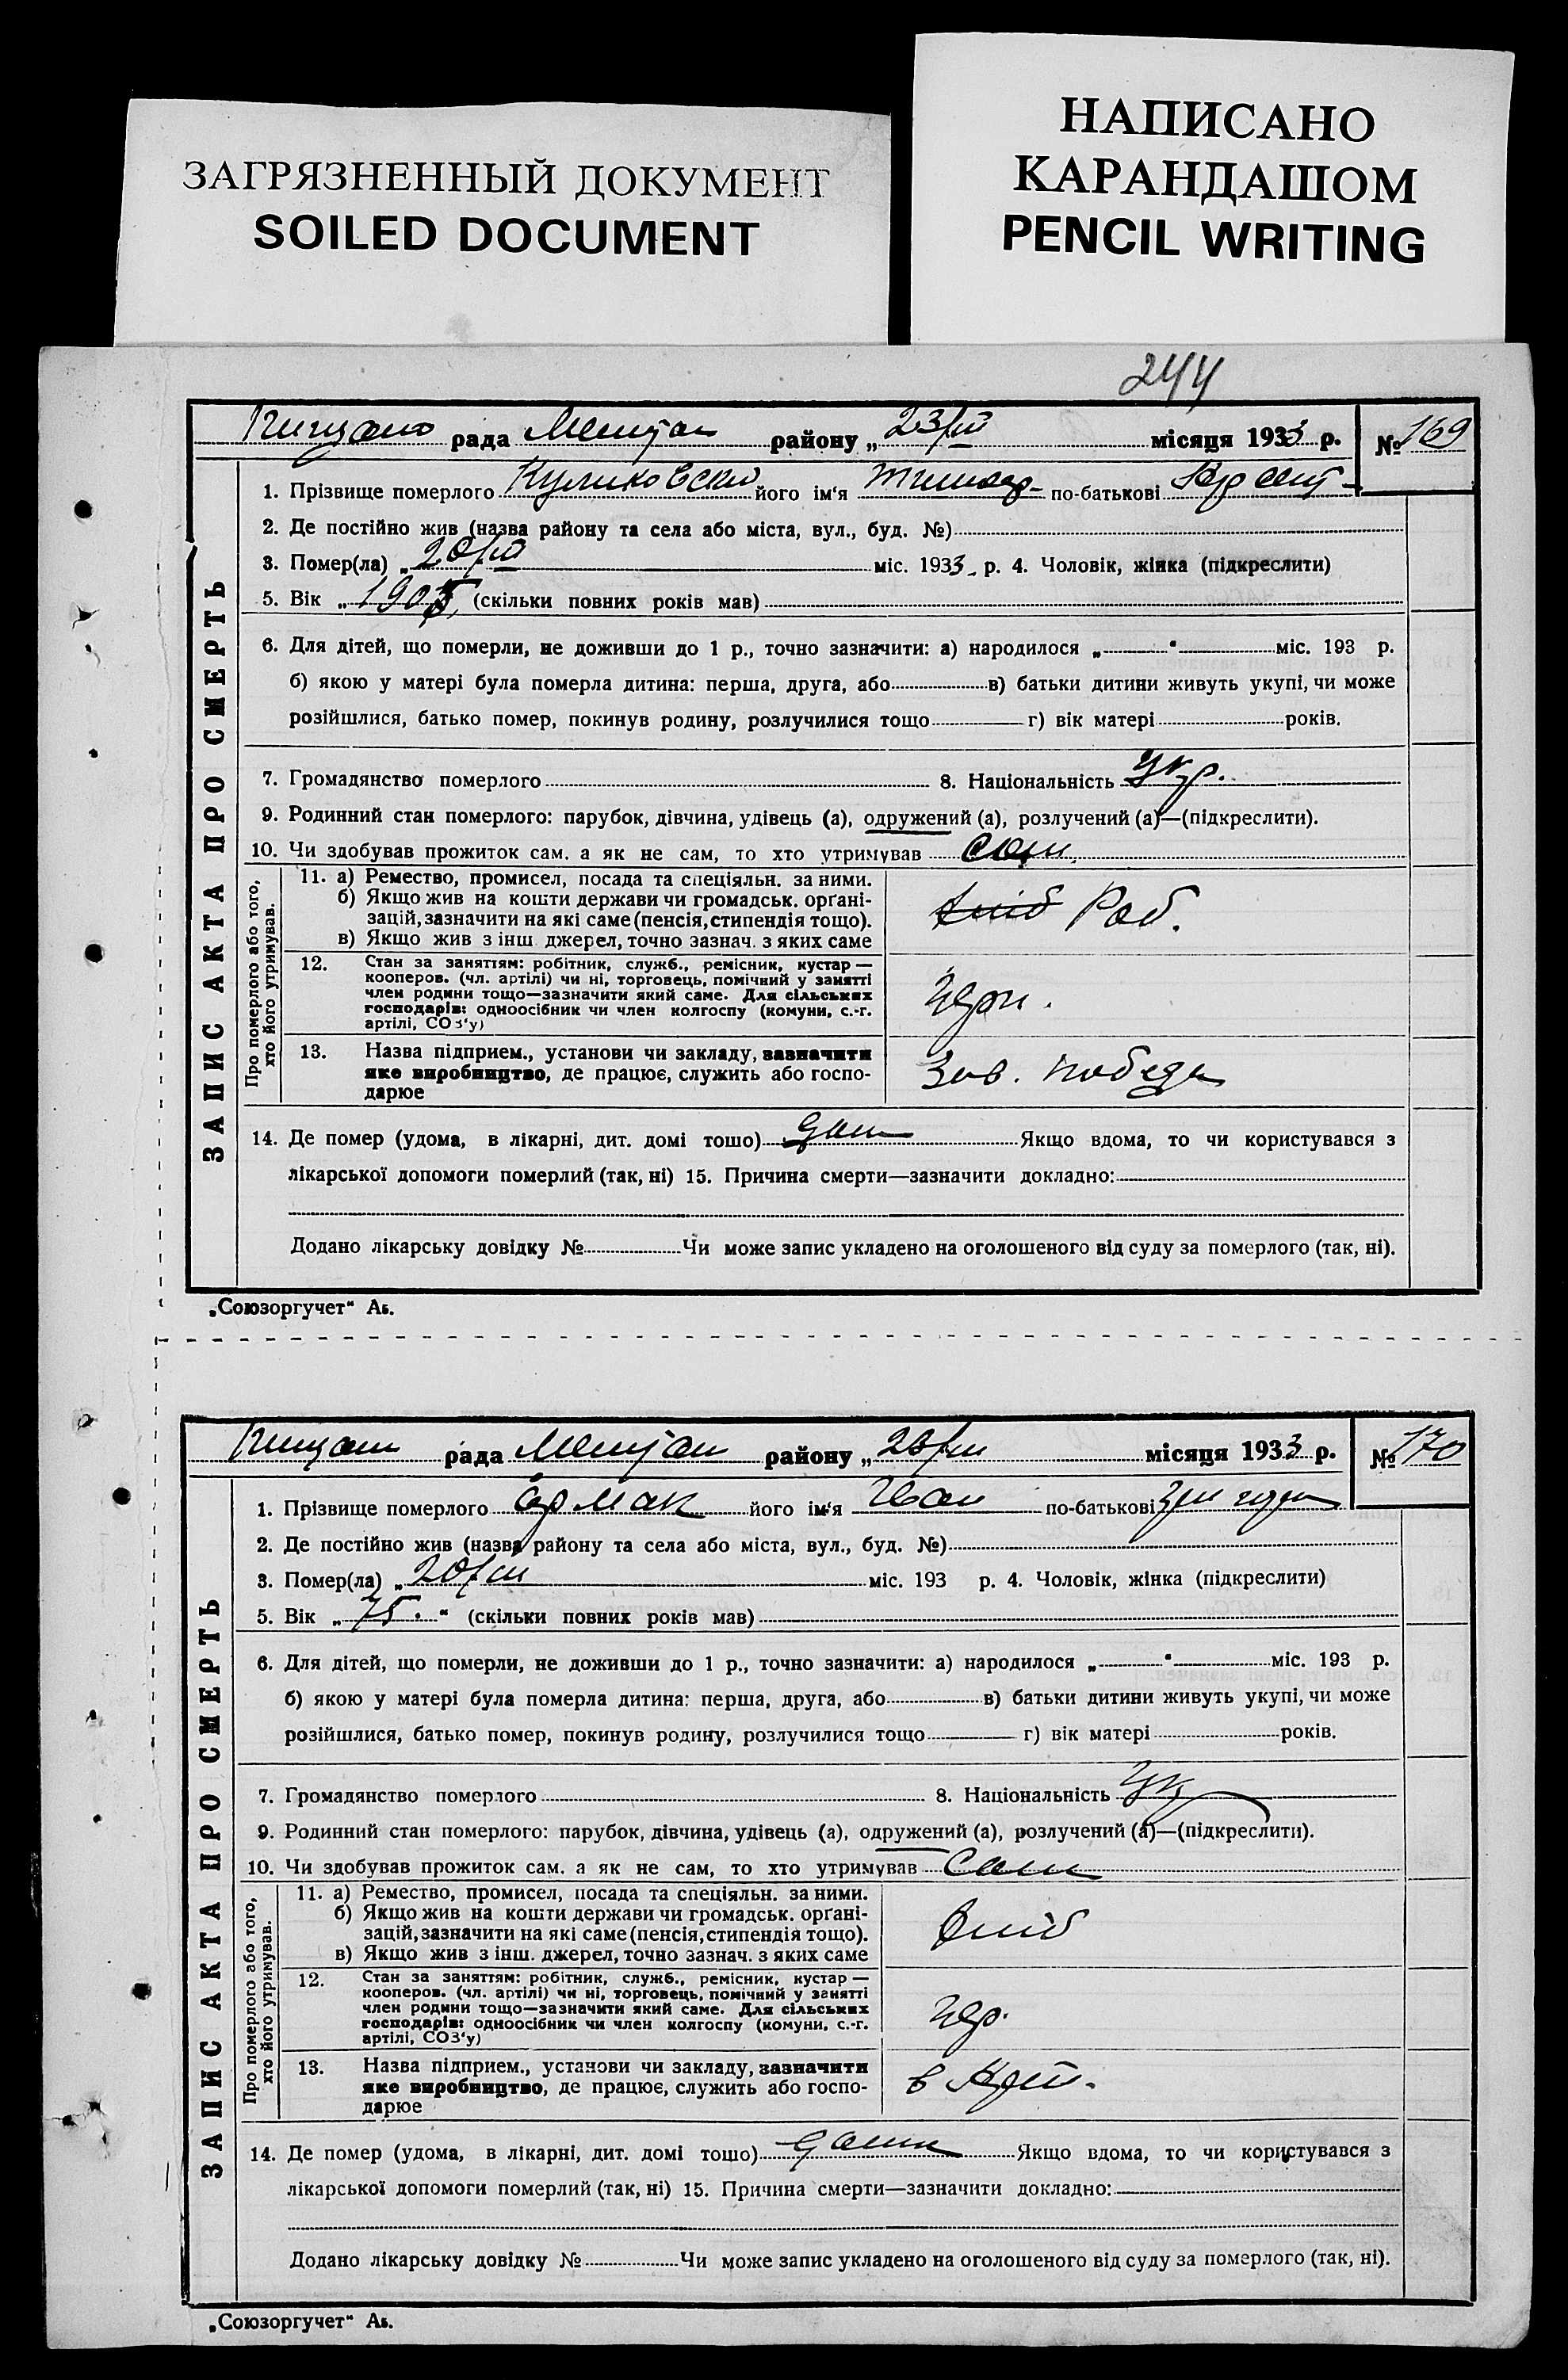 ЗАГРЯЗНЕННЫЙ ДОКУМЕНТ
SOILED DOCUMENT
НАПИСАНО
КАРАНДАШОМ
PENCIL WRITING
244
рада району „ 23/III місяця 1933 р. № 169
ЗАПИС АКТА ПРО СМЕРТЬ
1. Прізвище померлого Куликовский його ім‘я по-батькові
2. Де постійно жив (назва району та села або міста, вул., буд. №)
3. Помер(ла) „ 20/III міс. 1933 р. 4. Чоловік, жінка (підкреслити)
5. Вік „ 1905 (скільки повних років мав)
6. Для дітей, що померли, не доживши до 1 р., точно зазначити: а) народилося „ “ міс. 193 р.
б) якою у матері була померла дитина: перша, друга, або в) батьки дитини живуть укупі, чи може
розійшлися, батько помер, покинув родину, розлучилися тощо г) вік матері років.
7. Громадянство померлого 8. Національність Укр.
9. Родинний стан померлого: парубок, дівчина, удівець (а), одружений (а), розлучений (а)—(підкреслити).
10. Чи здобував прожиток сам. а як не сам, то хто утримував Сам
Про померлого або того,
хто його утримував.
11. а) Ремество, промисел, посада та спеціяльн. за ними.
б) Якщо жив на кошти держави чи громадськ. орґані-
зацій, зазначити на які саме (пенсія, стипендія тощо).
в) Якщо жив з інш джерел, точно зазнач. з яких саме
Роб.
12. Стан за заняттям: робітник, служб., ремісник, кустар —
кооперов. (чл. артілі) чи ні, торговець, помічний у занятті
член родини тощо—зазначити який саме. Для сільських
господарів: одноосібник чи член колгоспу (комуни, с.-г.
артілі, СОЗ‘у)
13. Назва підприєм., установи чи закладу, зазначити
яке виробництво, де працює, служить або госпо-
дарює
Зав. победа
14. Де помер (удома, в лікарні, дит. домі тошо) Якщо вдома, то чи користувався з
лікарської допомоги померлий (так, ні) 15. Причина смерти—зазначити докладно:
Додано лікарську довідку № Чи може запис укладено на оголошеного від суду за померлого (так, ні).
„Союзоргучет“ Аь.
рада району „ місяця 1933 р. № 170
ЗАПИС АКТА ПРО СМЕРТЬ
1. Прізвище померлого його ім‘я Іван по-батькові
2. Де постійно жив (назва району та села або міста, вул., буд. №)
3. Помер(ла) „ 20/III міс. 193 р. 4. Чоловік, жінка (підкреслити)
5. Вік „ 75. “ (скільки повних років мав)
6. Для дітей, що померли, не доживши до 1 р., точно зазначити: а) народилося „ “ міс. 193 р.
б) якою у матері була померла дитина: перша, друга, або в) батьки дитини живуть укупі, чи може
розійшлися, батько помер, покинув родину, розлучилися тощо г) вік матері років.
7. Громадянство померлого 8. Національність Ук
9. Родинний стан померлого: парубок, дівчина, удівець (а), одружений (а), розлучений (а)—(підкреслити).
10. Чи здобував прожиток сам. а як не сам, то хто утримував Сам
Про померлого або того,
хто його утримував.
11. а) Ремество, промисел, посада та спеціяльн. за ними.
б) Якщо жив на кошти держави чи громадськ. орґані-
зацій, зазначити на які саме (пенсія, стипендія тощо).
в) Якщо жив з інш. джерел, точно зазнач. з яких саме
12. Стан за заняттям: робітник, служб., ремісник, кустар —
кооперов. (чл. артілі) чи ні, торговець, помічний у занятті
член родини тощо—зазначити який саме. Для сільських
господарів: одноосібник чи член колгоспу (комуни, с.-г.
артілі, СОЗ‘у)
13. Назва підприєм., установи чи закладу, зазначити
яке виробництво, де працює, служить або госпо-
дарює
14. Де помер (удома, в лікарні, дит. домі тошо) Якщо вдома, то чи користувався з
лікарської допомоги померлий (так, ні) 15. Причина смерти—зазначити докладно:
Додано лікарську довідку № Чи може запис укладено на оголошеного від суду за померлого (так, ні).
„Союзоргучет“ Аь.